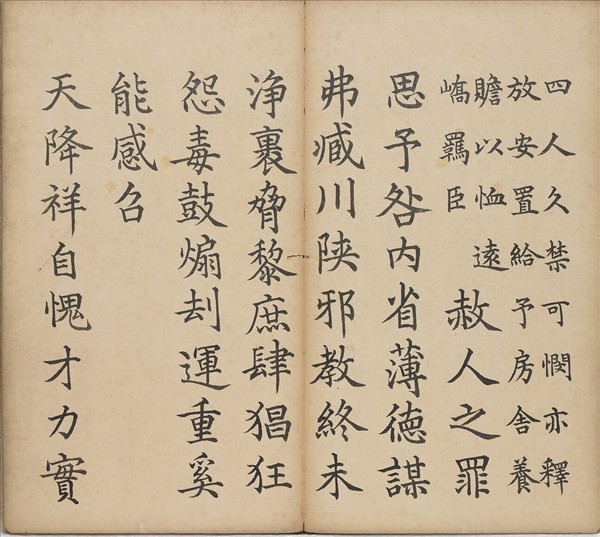 四人久禁可憫亦釋
放安置給予房舍養
贍以恤遠
嶠羈臣
赦人之罪
思予咎内省薄德謀
弗臧川陝邪教終未
浄裹脅黎庶肆猖狂
怨毒鼓煽刦運重奚
能感召
天降祥自愧才力實